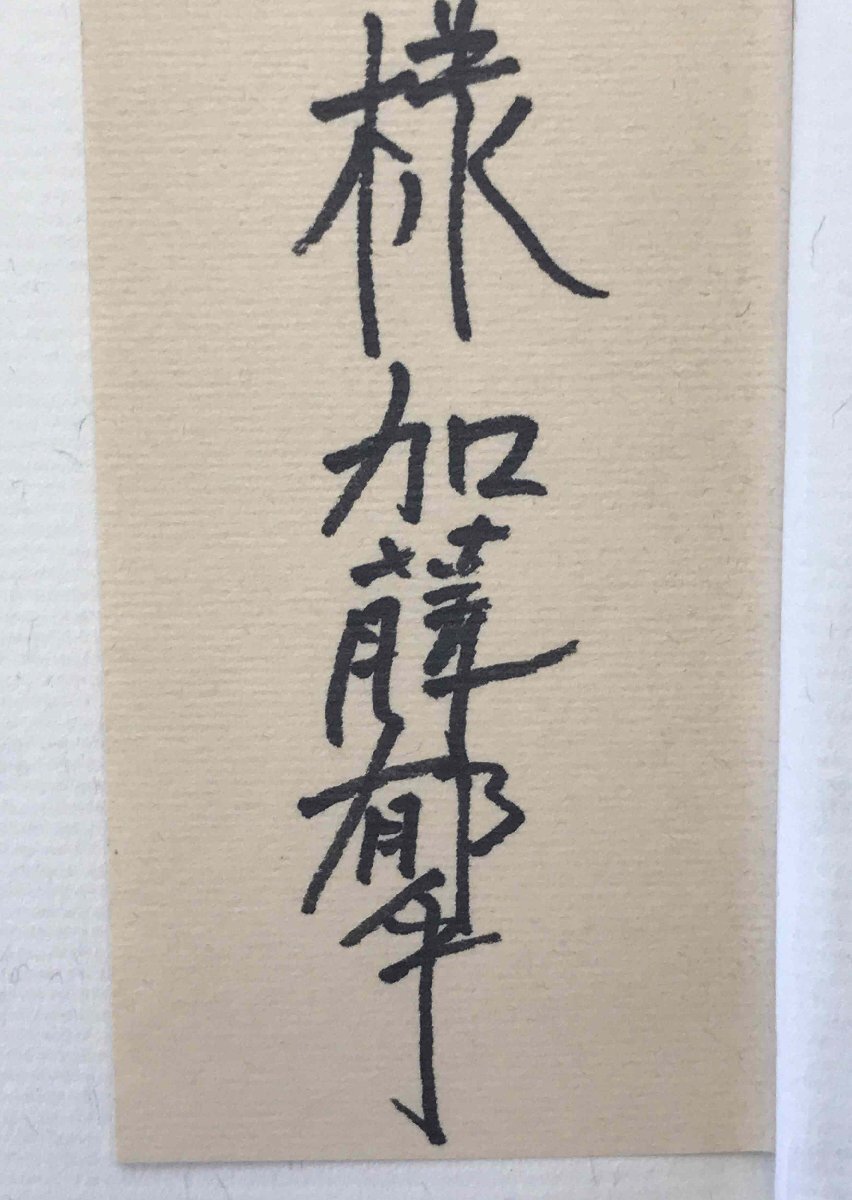 様 加藤郁乎